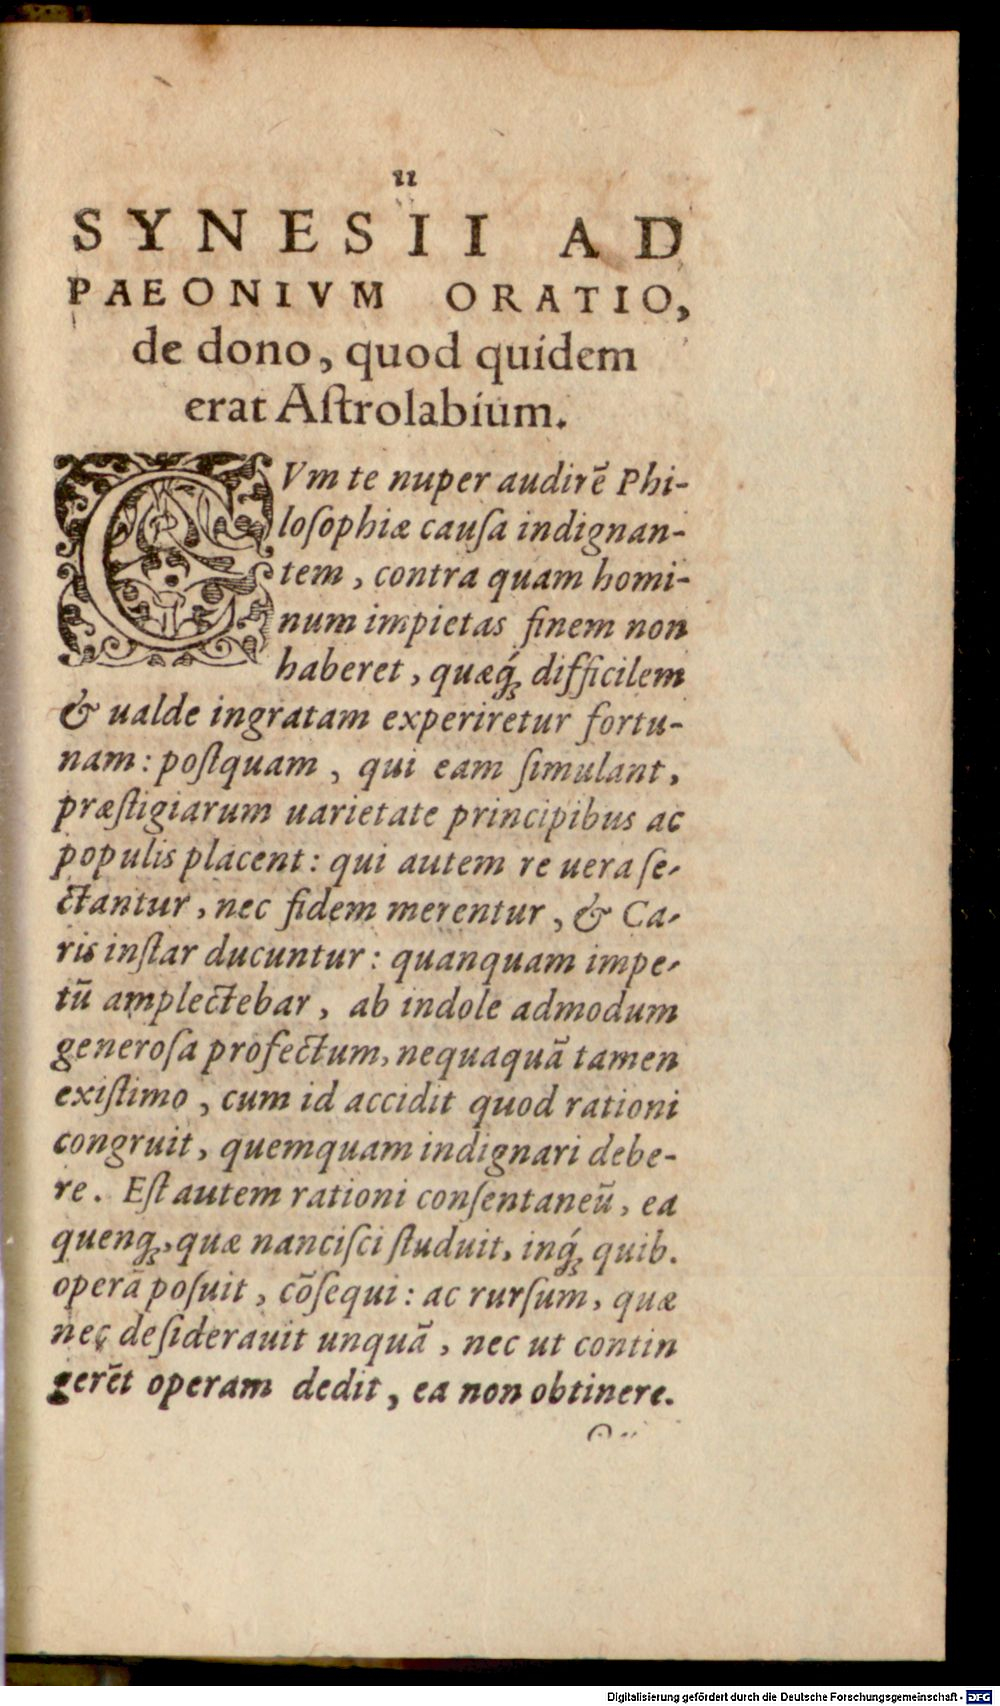 11
SYNESII AD
PAEONIVM ORATIO,
de dono, quod quidem
erat Aſtrolabium.
CVm te nuper audirẽ Phi-
loſophiæ cauſa indignan-
tem, contra quam homi-
num impietas finem non
haberet, quæq́ꝫ difficilem
& ualde ingratam experiretur fortu-
nam: poſtquam, qui eam ſimulant,
præſtigiarum uarietate principibus ac
populis placent: qui autem re uera ſe-
ctantur, nec fidem merentur, & Ca-
ris inſtar ducuntur: quanquam impe-
tũ amplectebar, ab indole admodum
generoſa profectum, nequaquã tamen
exiſtimo, cum id accidit quod rationi
congruit, quemquam indignari debe-
re. Eſt autem rationi conſentaneũ, ea
quenqꝫ, quæ nanciſci ſtuduit, inq́ꝫ quib.
operã poſuit, cõſequi: ac rurſum, quæ
nec deſiderauit unquã, nec ut contin
gerẽt operam dedit, ea non obtinere.
Digitalisierung gefördert durch die Deutsche Forschungsgemeinschaft - DFG